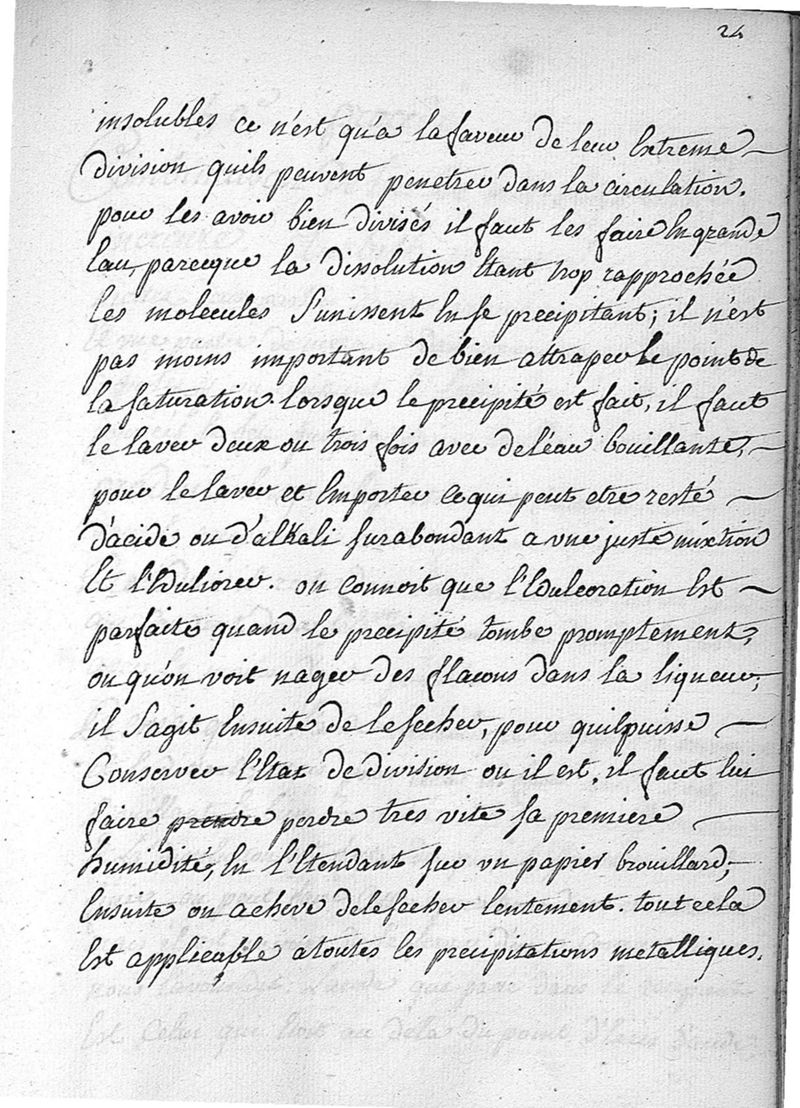 24
insolubles ce n'est qu'a la faveur de leur Extreme
division quils peuvent penetrer dans la circulation.
pour les avoir bien divisés il faut les faire En grande
Eau, parceque la dissolution Etant trop rapprochée
les molecules s'unissent En se precipitant; il n'est
pas moins important de bien attraper le point de
la saturation. lorsque le precipité est fait, il faut
le laver deux ou trois fois avec de l'éau bouillante,
pour le laver et Emporter ce qui peut etre resté
d'acide ou d'alkali surabondant a une juste mixtion
Et l'Edulcorer. on connoit que l'Edulcoration Est
parfaite quand le precipité tombe promptement,
ou qu'on voit nager des flacons dans la liqueur;
il s'agit Ensuite de le secher, pour quil puisse
Conserver l'Etat de division ou il est, il faut lui
faire prendre perdre tres vite sa premiere
humidité, En l'Etendant sur un papier brouillard,
Ensuite on acheve de le secher lentement. tout cela
Est applicable à toutes les precipitations metalliques.